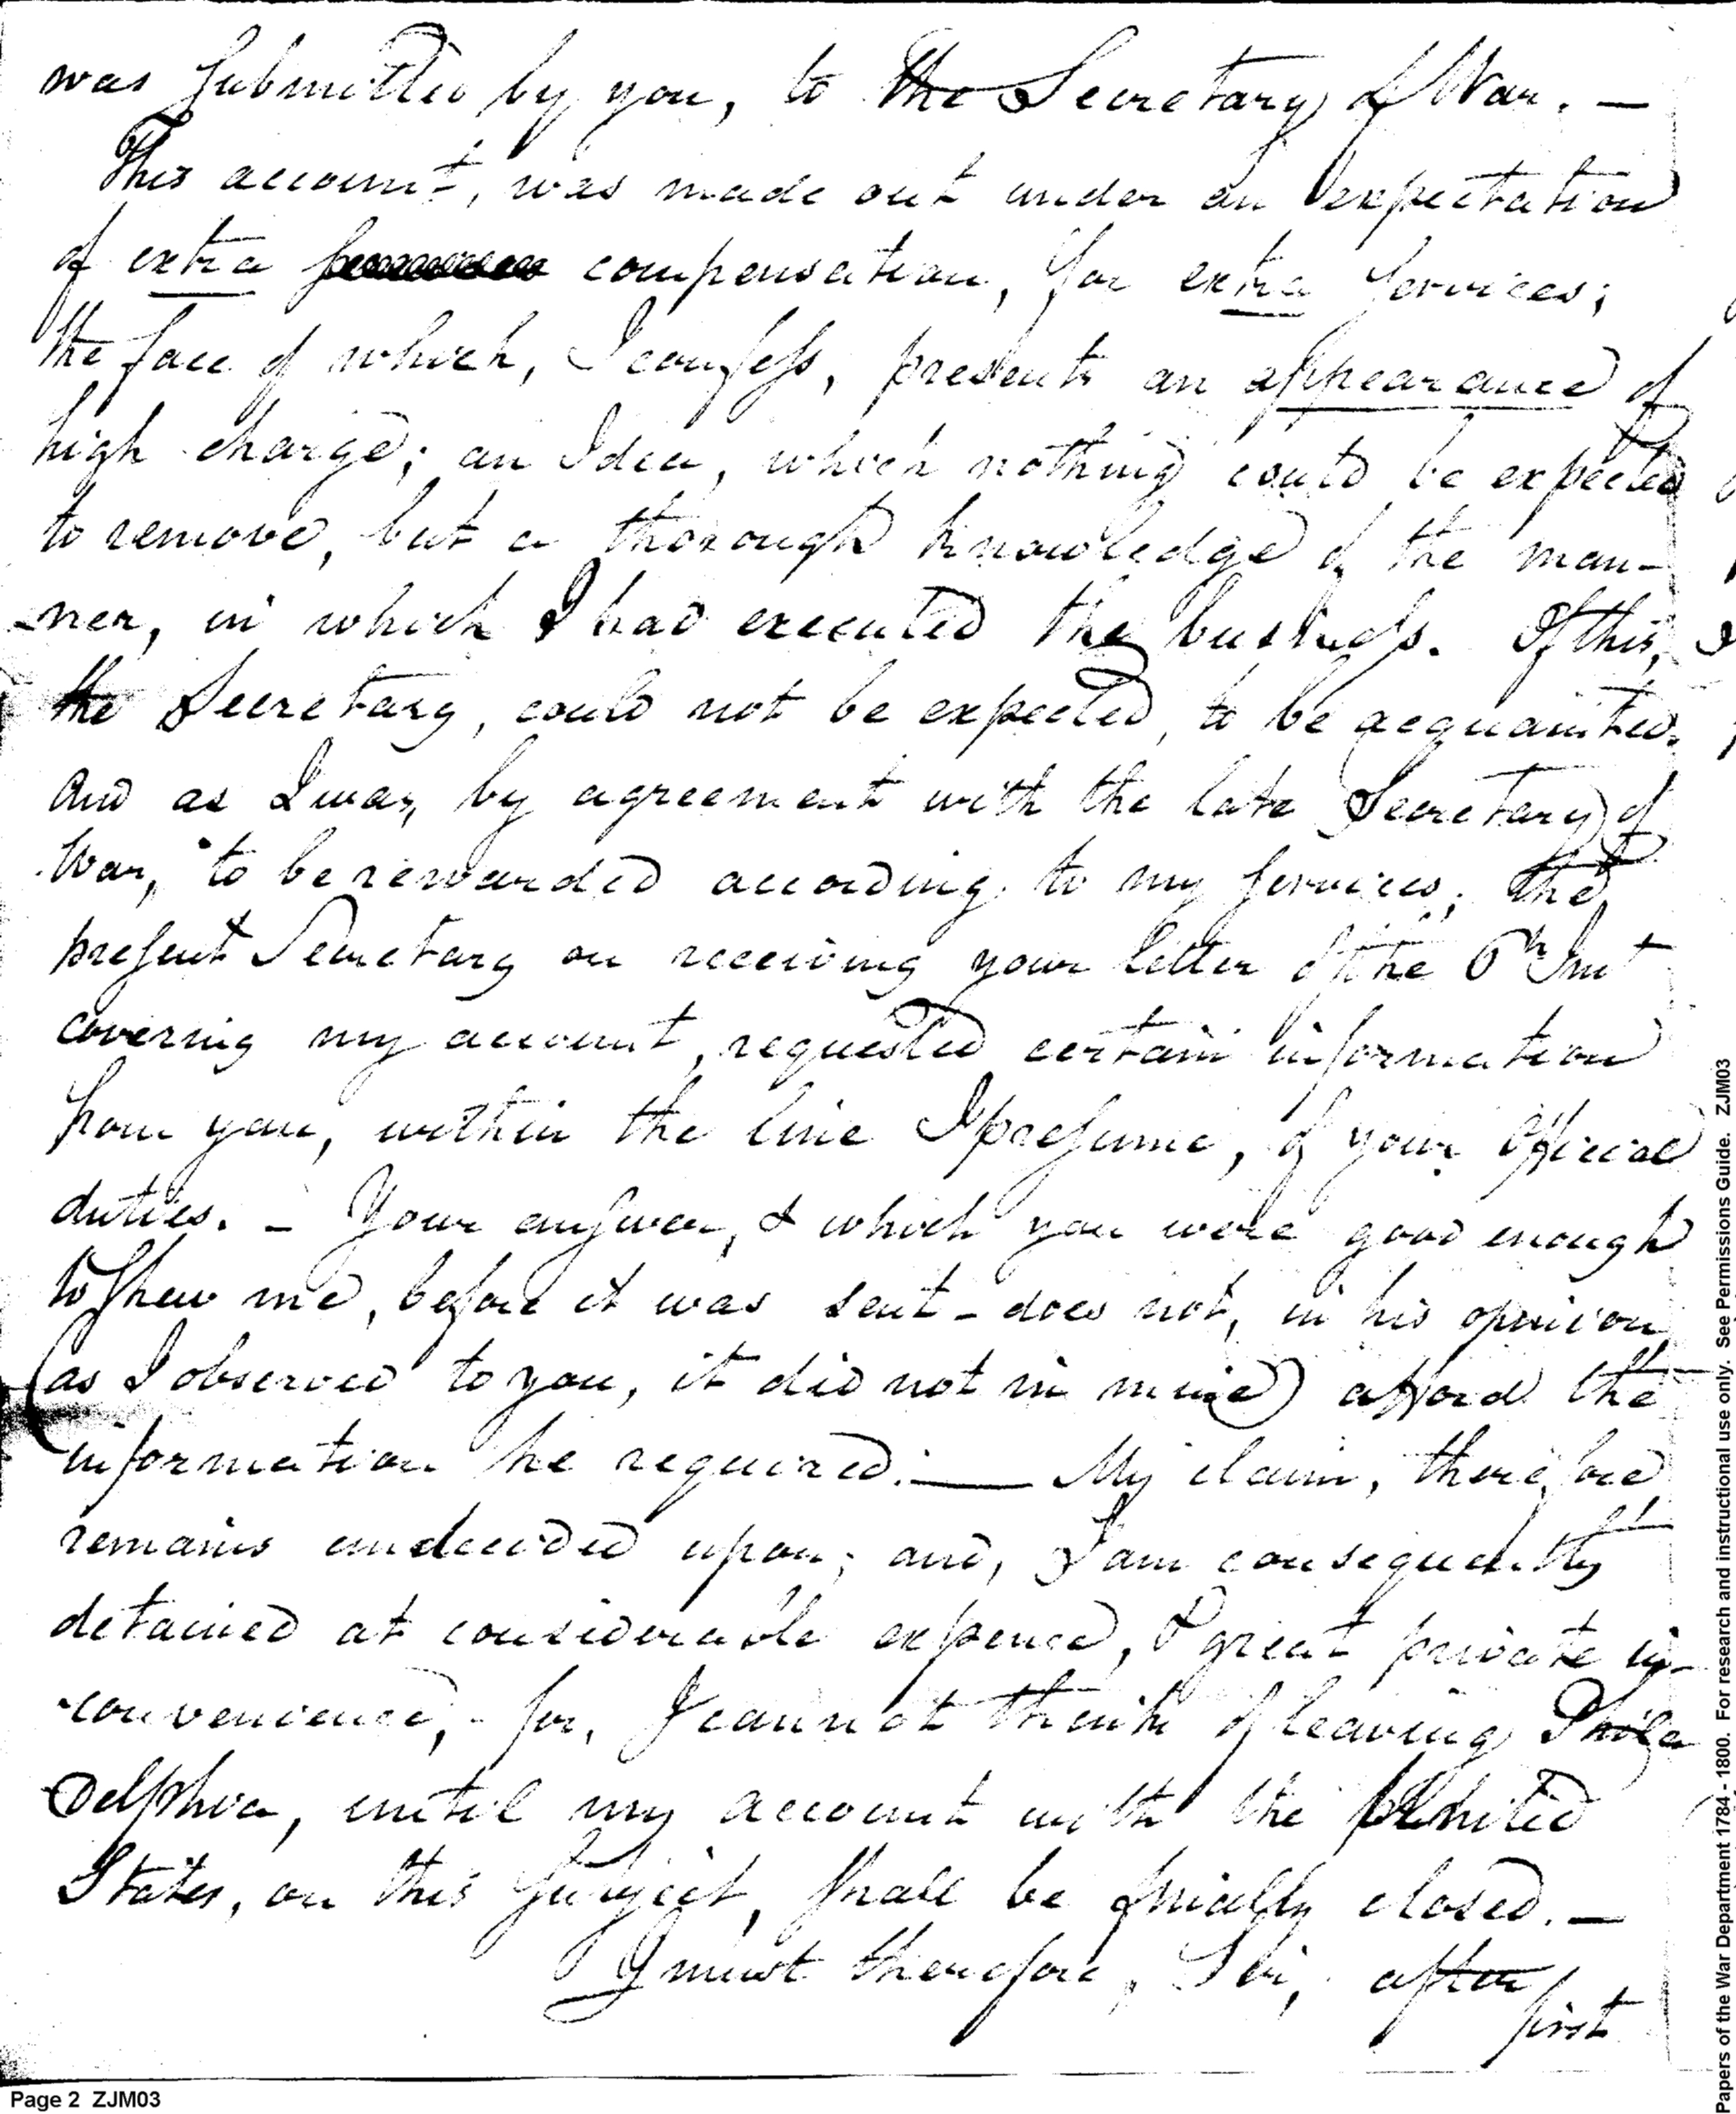 was submitted by you, to the Secretary of War. —
This account, was made out under an expectation
of extra compensation, for extra services;
the face of which, I confess, presents an appearance of
high charge; an Idea, which nothing could be expected
to remove, but a thorough knowledge of the man-
-ner, in which I had executed the business. Of this,
the Secretary, could not be expected, to be acquainted.
And as I was, by agreement with the late Secretary of
War, to be rewarded according to my services; the
present Secretary on receiving your letter of the 6th Inst
covering my account, requested certain information
from you, within the line I presume, of your Official
duties. – Your answer, & which you were good enough
to shew me, before it was sent – does not, in his opinion
(as I observed to you, it did not in mine) afford the
information he required. — My claim, therefore
remains undecided upon; and, I am consequently
detained at considerable expence, & great private in-
-convenience, - for, I cannot think of leaving Phila
Delphia, until my account with the United
States, on this subject, shall be finally closed. —
I must therefore, Sir, after
first
Page 2 ZJM03
Papers of the War Department 1784 - 1800. For research and instructional use only. See Permissions Guide. ZJM03